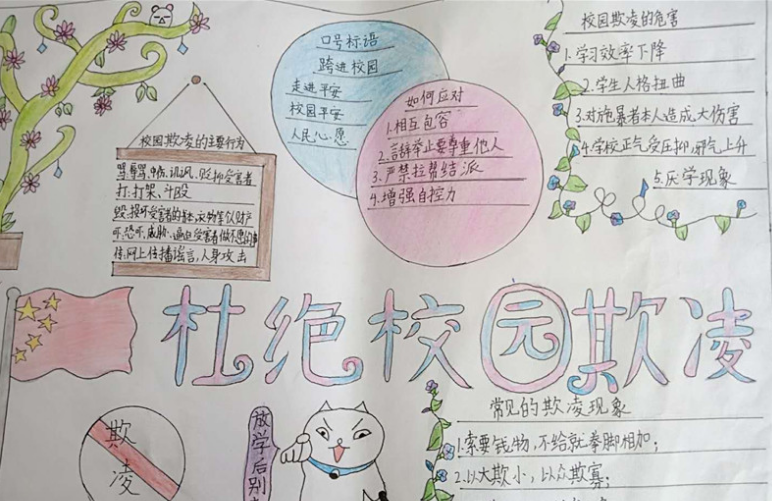 校园欺凌的主要行为
骂:辱骂、中伤、讥讽、贬抑受害者
打:打架、斗殴
毁:损坏受害者的书本、衣物等仪财产
吓:恐吓、威胁、逼迫受害者做不愿的事
传:网上传播谣言,人身攻击
口号标语
跨进校园
走进平安
校园平安
人民心愿
如何应对
1.相互包容
2.言辞举止要尊重他人
3.严禁拉帮结派
4.增强自控力
校园欺凌的危害
1.学习效率下降
2.学生人格扭曲
3.对施暴者本人造成大伤害
4.学校正气受压抑,邪气上升
5.厌学现象
杜绝校园欺凌
欺凌
放学后别
常见的欺凌现象
1.索要钱物,不给就拳脚相加;
2.以大欺小,以众欺寡;